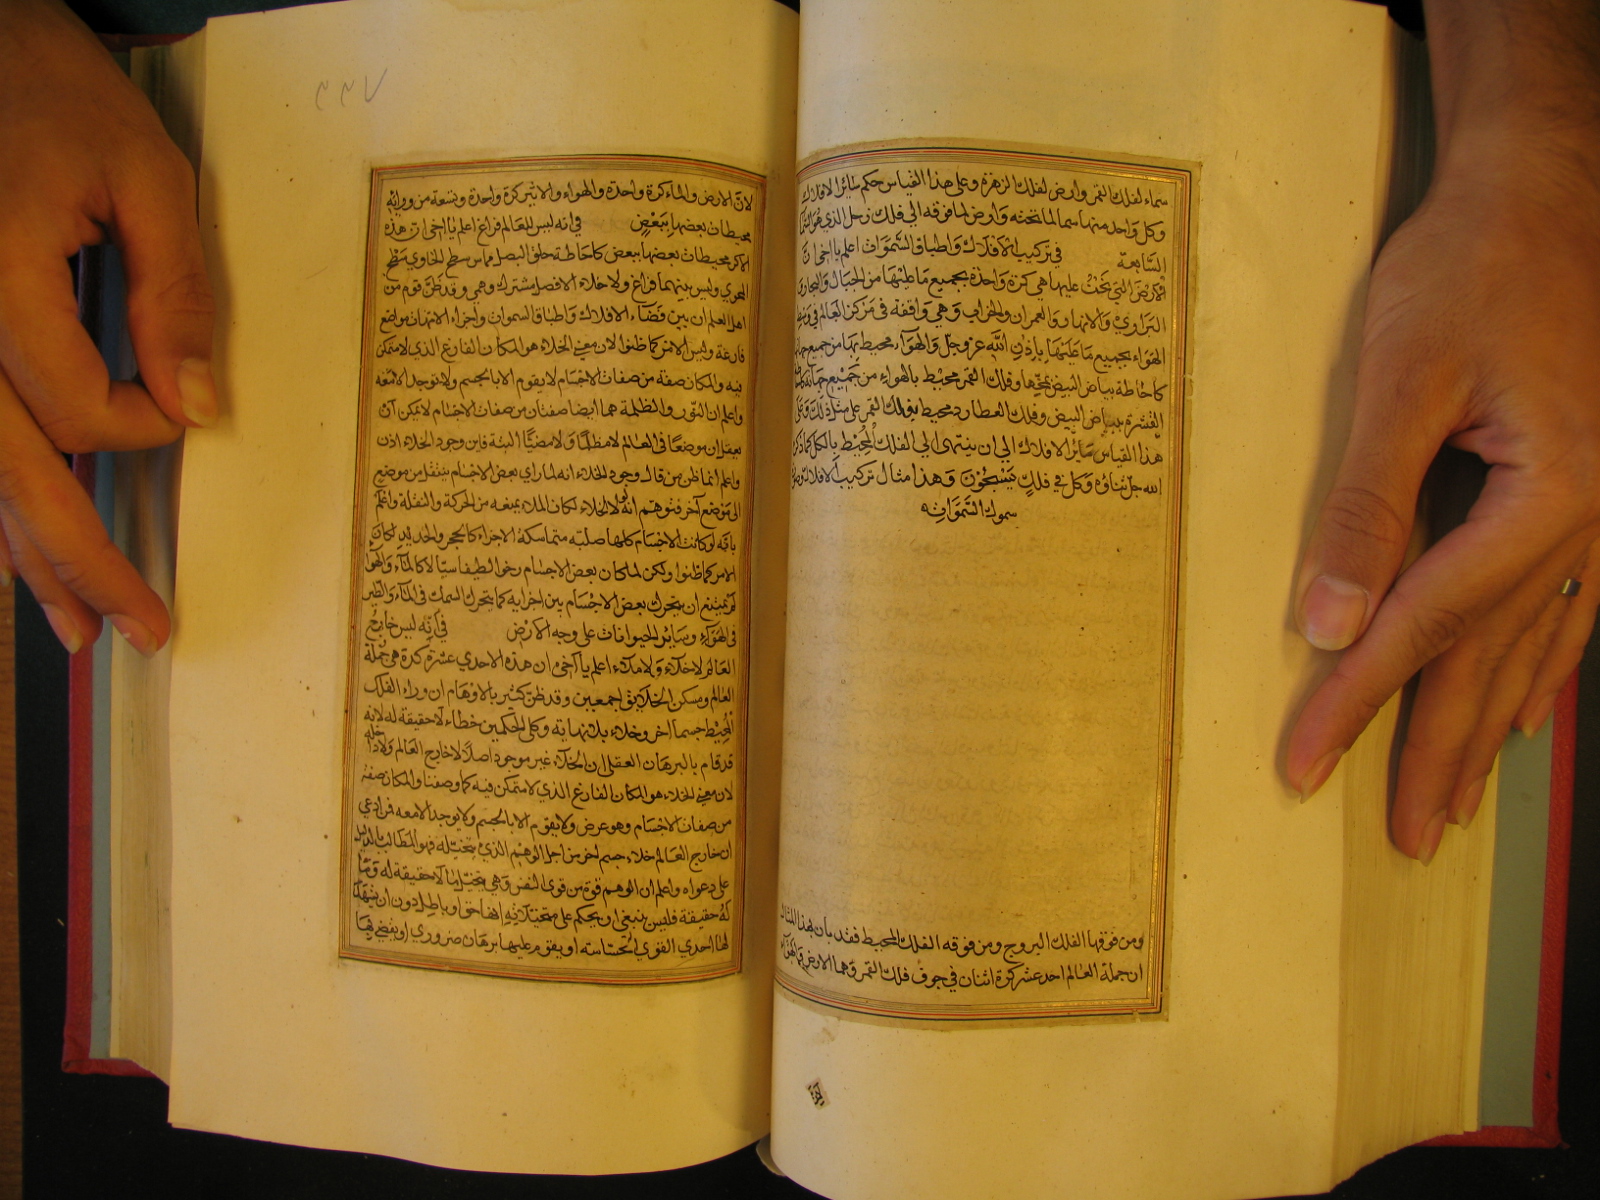 سماء لفلك القمر وارض لفلك الزهرة وعلى هذا القياس حكم سائر الافلاك
وكل واحد منها سما لما تحته وارض لما فوقه الى فلك زحل الذي هو السماء
السابعة في تركيب الافلاك واطباق السموات اعلم يا اخي ان
الارض التي نحن عليها هي كرة واحدة بجميع ما عليها من الجبال والبحار و
البراري والانهار والعمران والخراب وهي واقفة في مركز العالم في وسط
الهواء بجميع ما عليها باذن الله عز وجل والهواء محيط بها من جميع جهاتها
كاحاطة بياض البيض بمحها وفلك القمر محيط بالهواء من جميع جهاته كاحاطة
القشرة ببياض البيض وفلك العطارد محيط بفلك القمر على مثل ذلك وعلى
هذا القياس سائر الافلاك الى ان ينتهى الى الفلك المحيط بالكل كما ذكر
الله جل ثناؤه وكل في فلك يسبحون وهذا مثال تركيب الافلاك و
سموك السموات
ومن فوقها الفلك البروج ومن فوقه الفلك المحيط فقد بان بهذا المثال
ان جملة العالم احد عشر كرة اثنان في جوف فلك القمر وهما الارض والهواء
٣٣٧
لان الارض والماء كرة واحدة والهواء والاثير كرة واحدة وتسعة من ورائه
محيطات بعضها ببعض في انه ليس للعالم فراغ اعلم يا اخي ان هذه
الاكر محيطات بعضها ببعض كاحاطة حلق البصل مماس سطح الحاوي سطح
المحوي وليس بينهما فراغ ولا خلاء الا فصل مشترك وهمي وقد ظن قوم من
اهل العلم ان بين فضاء الافلاك واطباق السموات واجزاء الامهات مواضع
فارغة وليس الامر كما ظنوا لان معنى الخلاء هو المكان الفارغ الذي لا متمكن
فيه والمكان صفة من صفات الاجسام لا يقوم الا بالجسم ولا يوجد الا معه
واعلم ان النور والظلمة هما ايضا صفتان من صفات الاجسام لا يمكن ان
يعقل ان موضعا في العالم لا مظلما ولا مضيئا البتة فاين وجود الخلاء اذن
واعلم انما ظن من قال وجود الخلاء انه لما راى بعض الاجسام ينتقل من موضع
الى موضع آخر فتوهم انه لولا الخلاء لكان الملاء يمنعه من الحركة والنقلة واعلم
بانه لو كانت الاجسام كلها صلبة متماسكة الاجزاء كالحجر والحديد لكان
الامر كما ظنوا ولكن لما كان بعض الاجسام رخوا لطيفا سيالا كالماء والهواء
لم يمتنع ان يتحرك بعض الاجسام بين اجزايه كما يتحرك السمك في الماء والطير
في الهواء وسائر الحيوانات على وجه الارض في انه ليس خارج
العالم لا خلاء ولا ملاء اعلم يا اخي ان هذه الاحدى عشرة كرة هي جملة
العالم ومسكن الخلائق اجمعين وقد ظن كثير بالاوهام ان وراء الفلك
المحيط جسما آخر وخلاء بلا نهاية وكلى الحكمين خطاء لا حقيقة له لانه
قد قام بالبرهان العقلى ان الخلاء غير موجود اصلا لا خارج العالم ولا داخله
لان معنى الخلاء هو المكان الفارغ الذي لا متمكن فيه كما وصفنا والمكان صفة
من صفات الاجسام وهو عرض ولا يقوم الا بالجسم ولا يوجد الا معه فمن ادعى
ان خارج العالم خلاء جسم آخر من اجل الوهم الذي يتخيل له فهو المطالب بالدليل
على دعواه واعلم ان الوهم قوة من قوى النفس وهي تتخيل ما لا حقيقة له وما
له حقيقة فليس ينبغي ان يحكم على متخيلاته انها حق او باطل دون ان يشهد
لها احدى القوى الحساسه او يقوم عليها برهان ضروري او يقضى لها